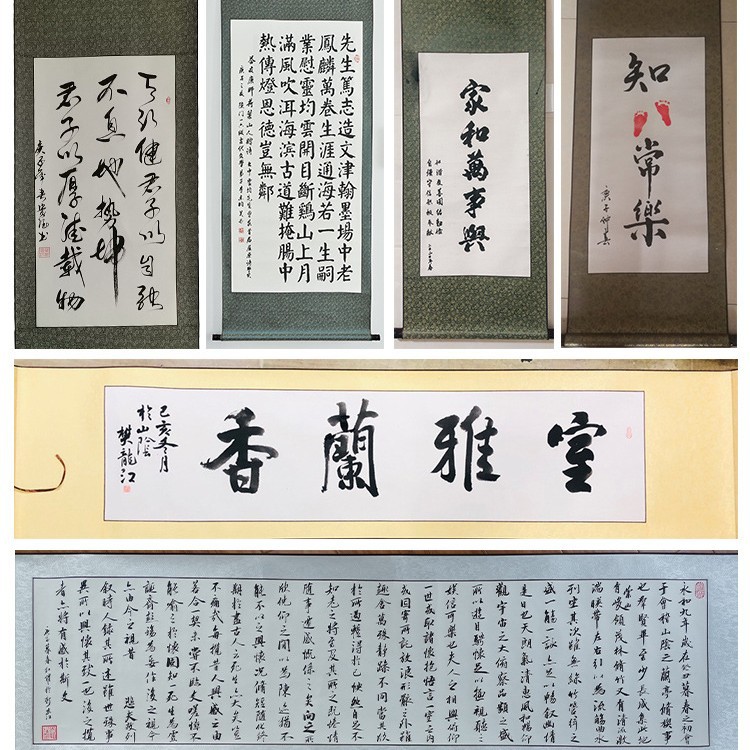 天行健君子以自強
不息地勢坤
君子以厚德載物
先生篤志造文津翰墨揚中老
鳳麟萬卷生涯通海若一生嗣
業慰靈均雲開目斷鷄山上月
滿風吹洱海濱古道難掩腸中
熱傳燈恩德豈無鄰
家和萬事興
和諧友善團結勤儉
知常樂
室雅蘭香
己亥冬月
於山陰
樊龍江
永和九年歲在癸丑暮春之初會
于會稽山陰之蘭亭脩稧事
也群賢畢至少長咸集此地
有崇領茂林脩竹又有清流激
湍暎帶左右引以為流觴曲水
列坐其次雖無絲竹管弦之
盛一觴一詠亦足以暢叙幽情
是日也天朗氣清惠風和暢仰
觀宇宙之大俯察品類之盛
所以遊目騁懷足以極視聽之
娛信可樂也夫人之相與俯仰
一世或取諸懷抱悟言一室之內
或因寄所託放浪形骸之外雖
趣舍萬殊靜躁不同當其欣
於所遇暫得於己快然自足不
知老之將至及其所之既惓情
隨事遷感慨係之矣向之所
欣俛仰之間以為陳迹猶不
能不以之興懷況脩短隨化終
期於盡古人云死生亦大矣豈
不痛哉每攬昔人興感之由
若合一契未嘗不臨文嗟悼不
能喻之於懷固知一死生為虛
誕齊彭殤為妄作後之視今
亦由今之視昔 悲夫故列
叙時人錄其所述雖世殊事
異所以興懷其致一也後之攬
者亦將有感於斯文